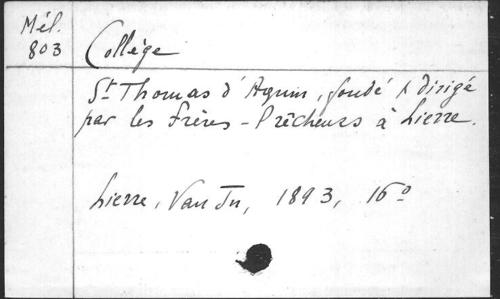 Mél.
803
Collège
St Thomas d'Aquin, fondé & dirigé
par les Frères-Prêcheurs à Lierre.
Lierre, Van In, 1893, 16o